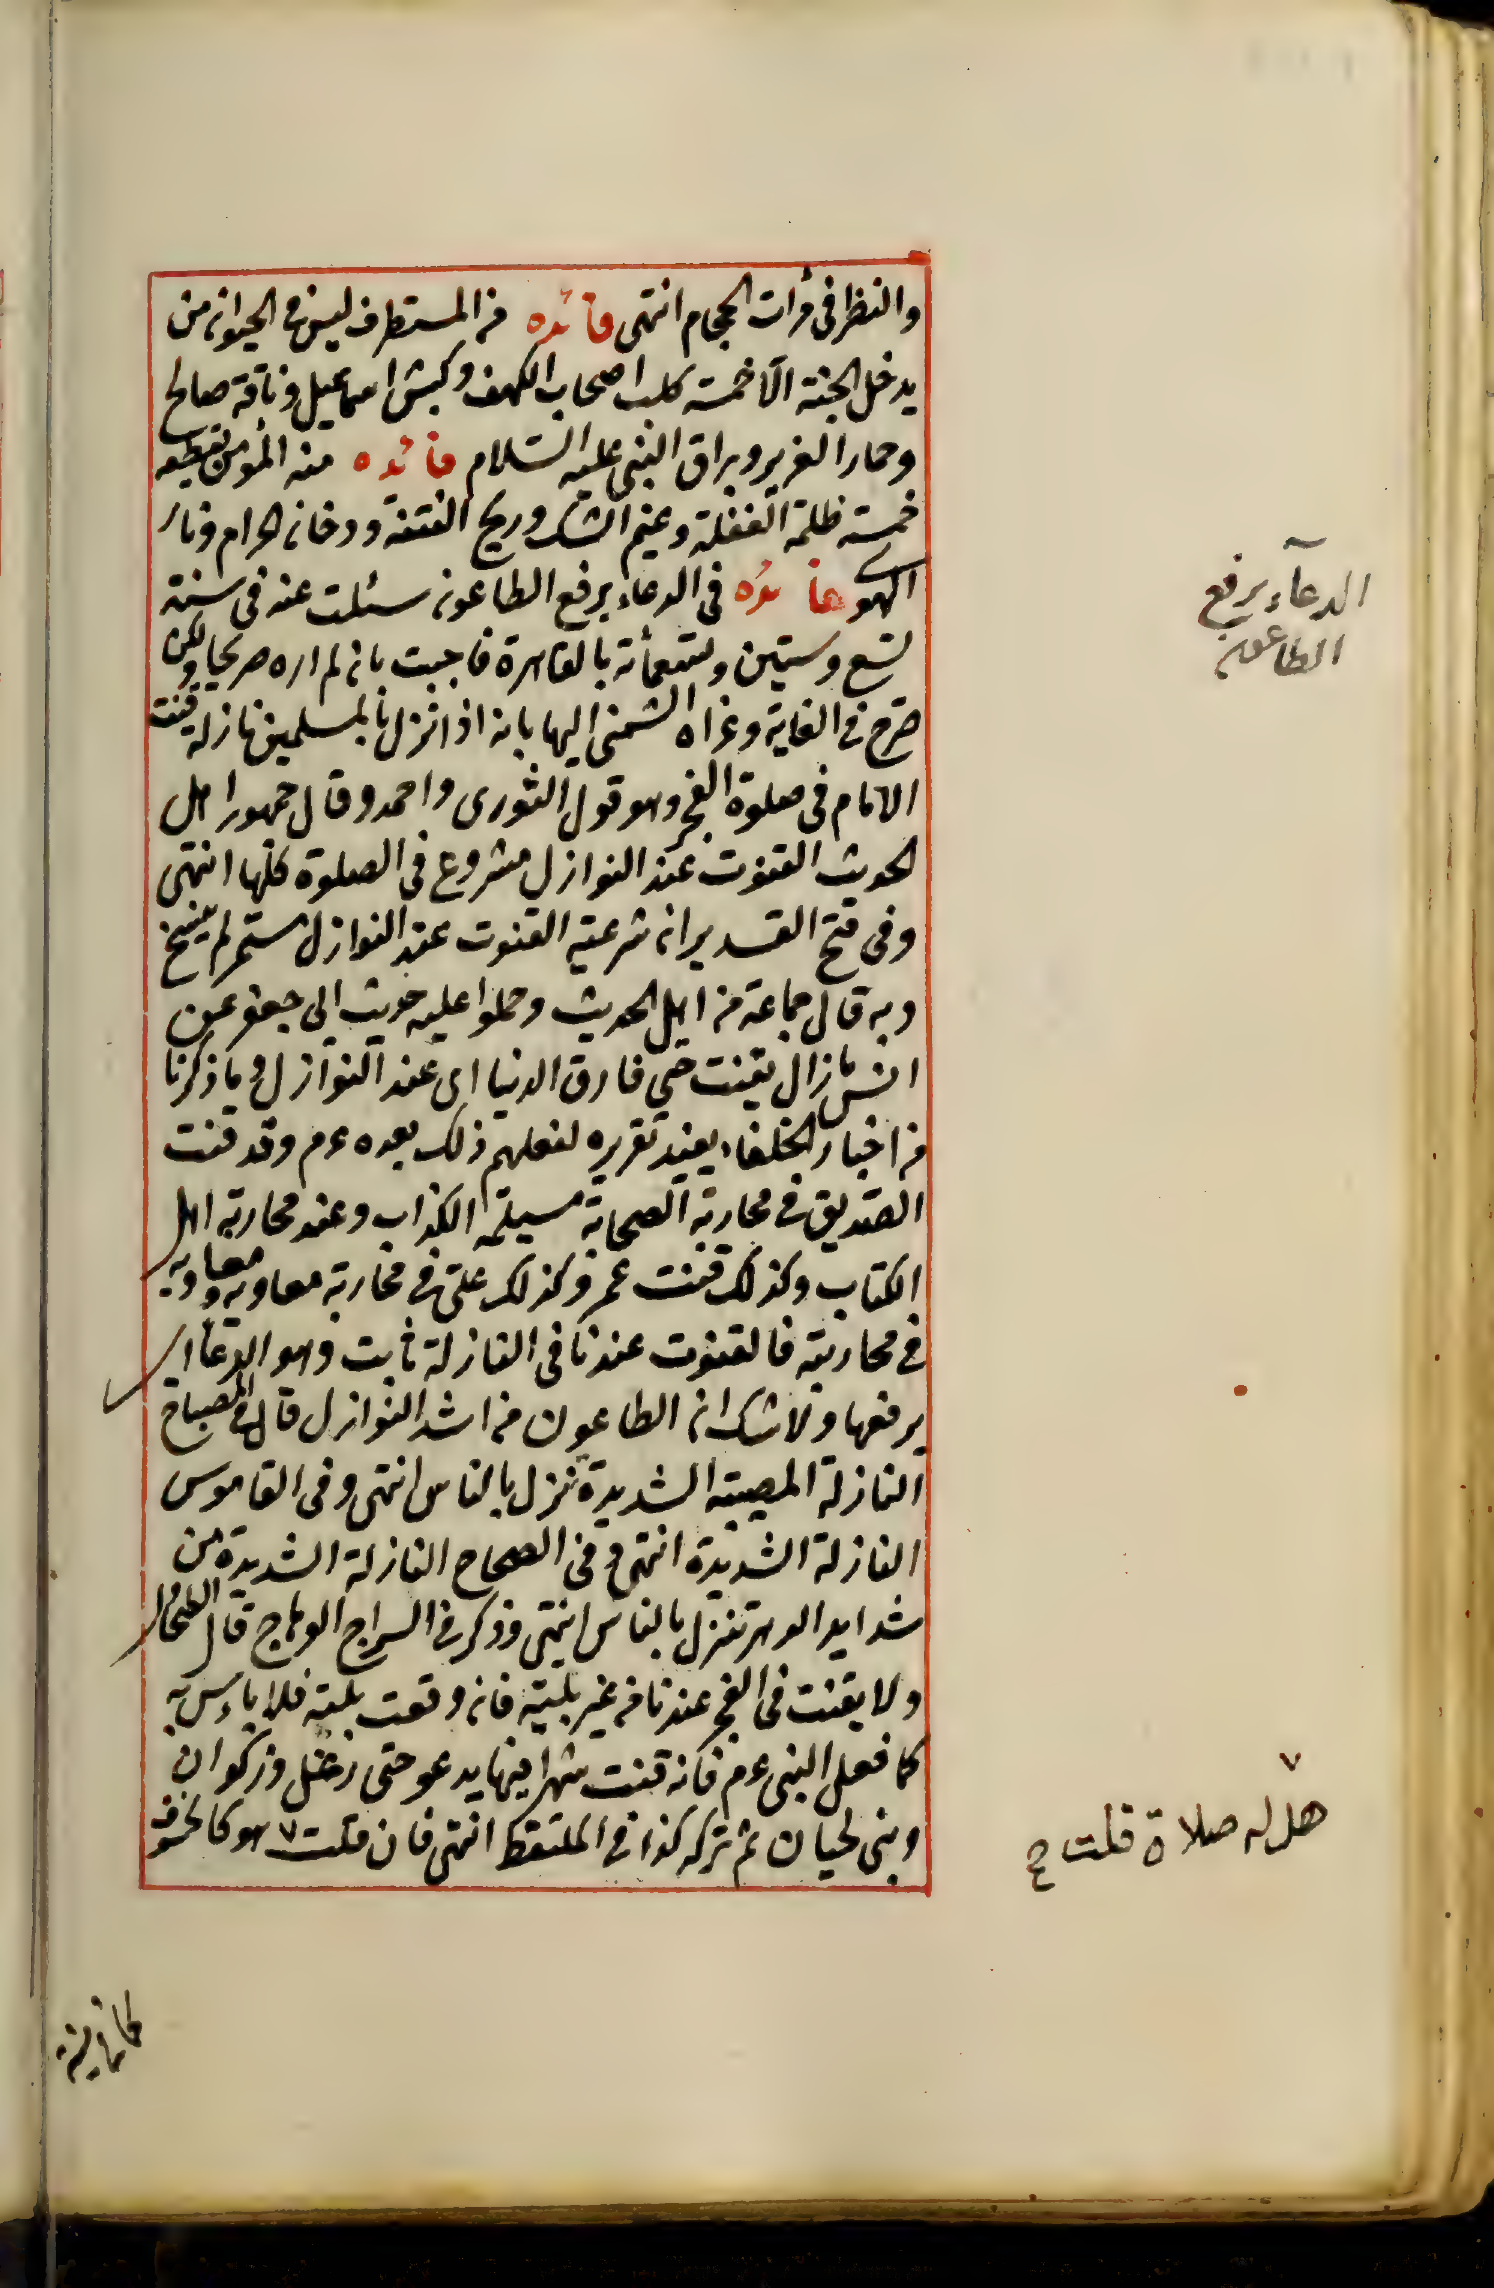 والنظر فى مرات الحجام انتهى فائده من المستطرف ليس فى الحيوان من
يدخل الجنة الا خمسة كلب اصحاب الكهف وكبش اسماعيل وناقة صالح
وحمار العزير وبراق النبى عليه السلام فائده منه المؤمن تقطعه
خمسة ظلمة الغفلة وغيم الشك وريح الفتنة ودخان الحرام ونار
الهوى فائده فى الدعاء برفع الطاعون سئلت عنه فى سنة
تسع وستين وتسعمأئة بالقاهرة فاجبت بانى لم اره صريحا ولكن
صرح فى الغاية وعزاه الشمنى اليها بانه اذا نزل بالمسلمين نازلة قنت
الامام فى صلوة الفجر وهو قول الثورى واحمد وقال جمهور اهل
الحديث القنوت عند النوازل مشروع فى الصلوة كلها انتهى
وفى فتح القدير ان شرعية القنوت عند النوازل مستمر لم ينسخ
وبه قال جماعة من اهل الحديث وحملوا عليه حديث ابى جعفر عن
انس ما زال يقنت حتى فارق الدنيا اى عند النوازل وما ذكرنا
من اخبار الخلفاء يفيد تقرره لفعلهم ذلك بعده عم وقد قنت
الصديق فى محاربة الصحابة مسيلمة الكذاب وعند محاربة اهل
الكتاب وكذلك قنت عمر وكذلك على فى محاربة معاوية ومعاوية
فى محاربته فالقنوت عندنا فى النازلة ثابت وهو الدعاء
برفعها ولا شك ان الطاعون من اشد النوازل قال فى المصباح
النازلة المصيبة الشديدة تنزل بالناس انتهى وفى القاموس
النازلة الشديدة انتهى وفى الصحاح النازلة الشديدة من
شدايد الدهر تنزل بالناس انتهى وذكر فى السراج الوهاج قال الطحاوى
ولا يقنت فى الفجر عندنا من غير بلية فان وقعت بلية فلا باءس به
كما فعل النبى عم فانه قنت شهرا فيها يدعو حتى رعل وذكوان
وبنى لحيان ثم تركه كذا فى الملتقط انتهى فان قلت ٧ هو كالخسوف
الدعآء برفع
الطاعون
٧
هل له صلاة قلت ح